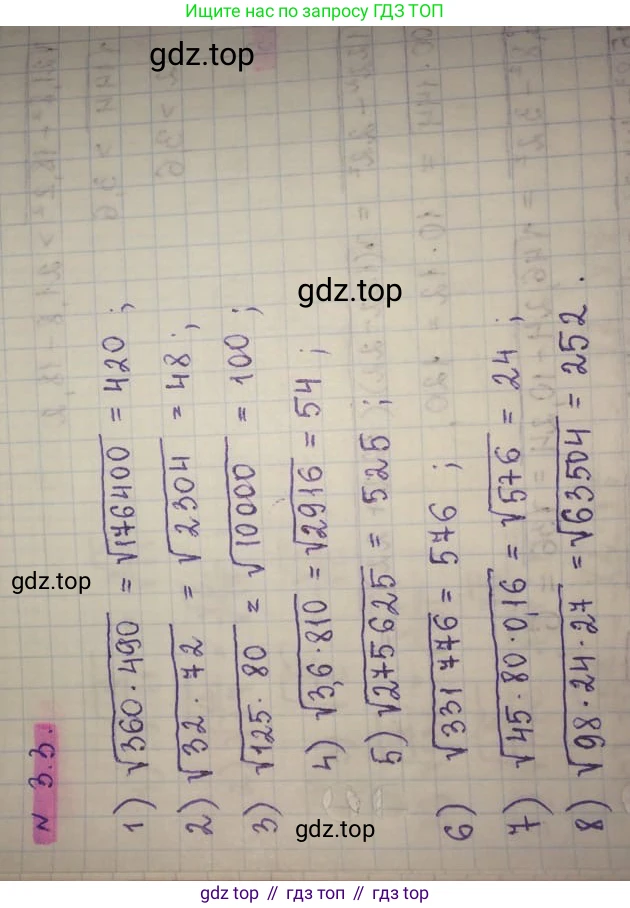 Ищите нас по запросу ГДЗ ТОП
gdz.top
gdz.top
gdz.top
gdz.top
N 3.3.
1) √360·490 = √176400 = 420 ;
2) √32·72 = √2304 = 48 ;
3) √125·80 = √10000 = 100 ;
4) √3,6·810 = √2916 = 54 ;
5) √275625 = 525 ;
6) √331776 = 576 ;
7) √45·80·0,16 = √576 = 24 ;
8) √98·24·27 = √63504 = 252 .
gdz top // гдз топ // gdz top